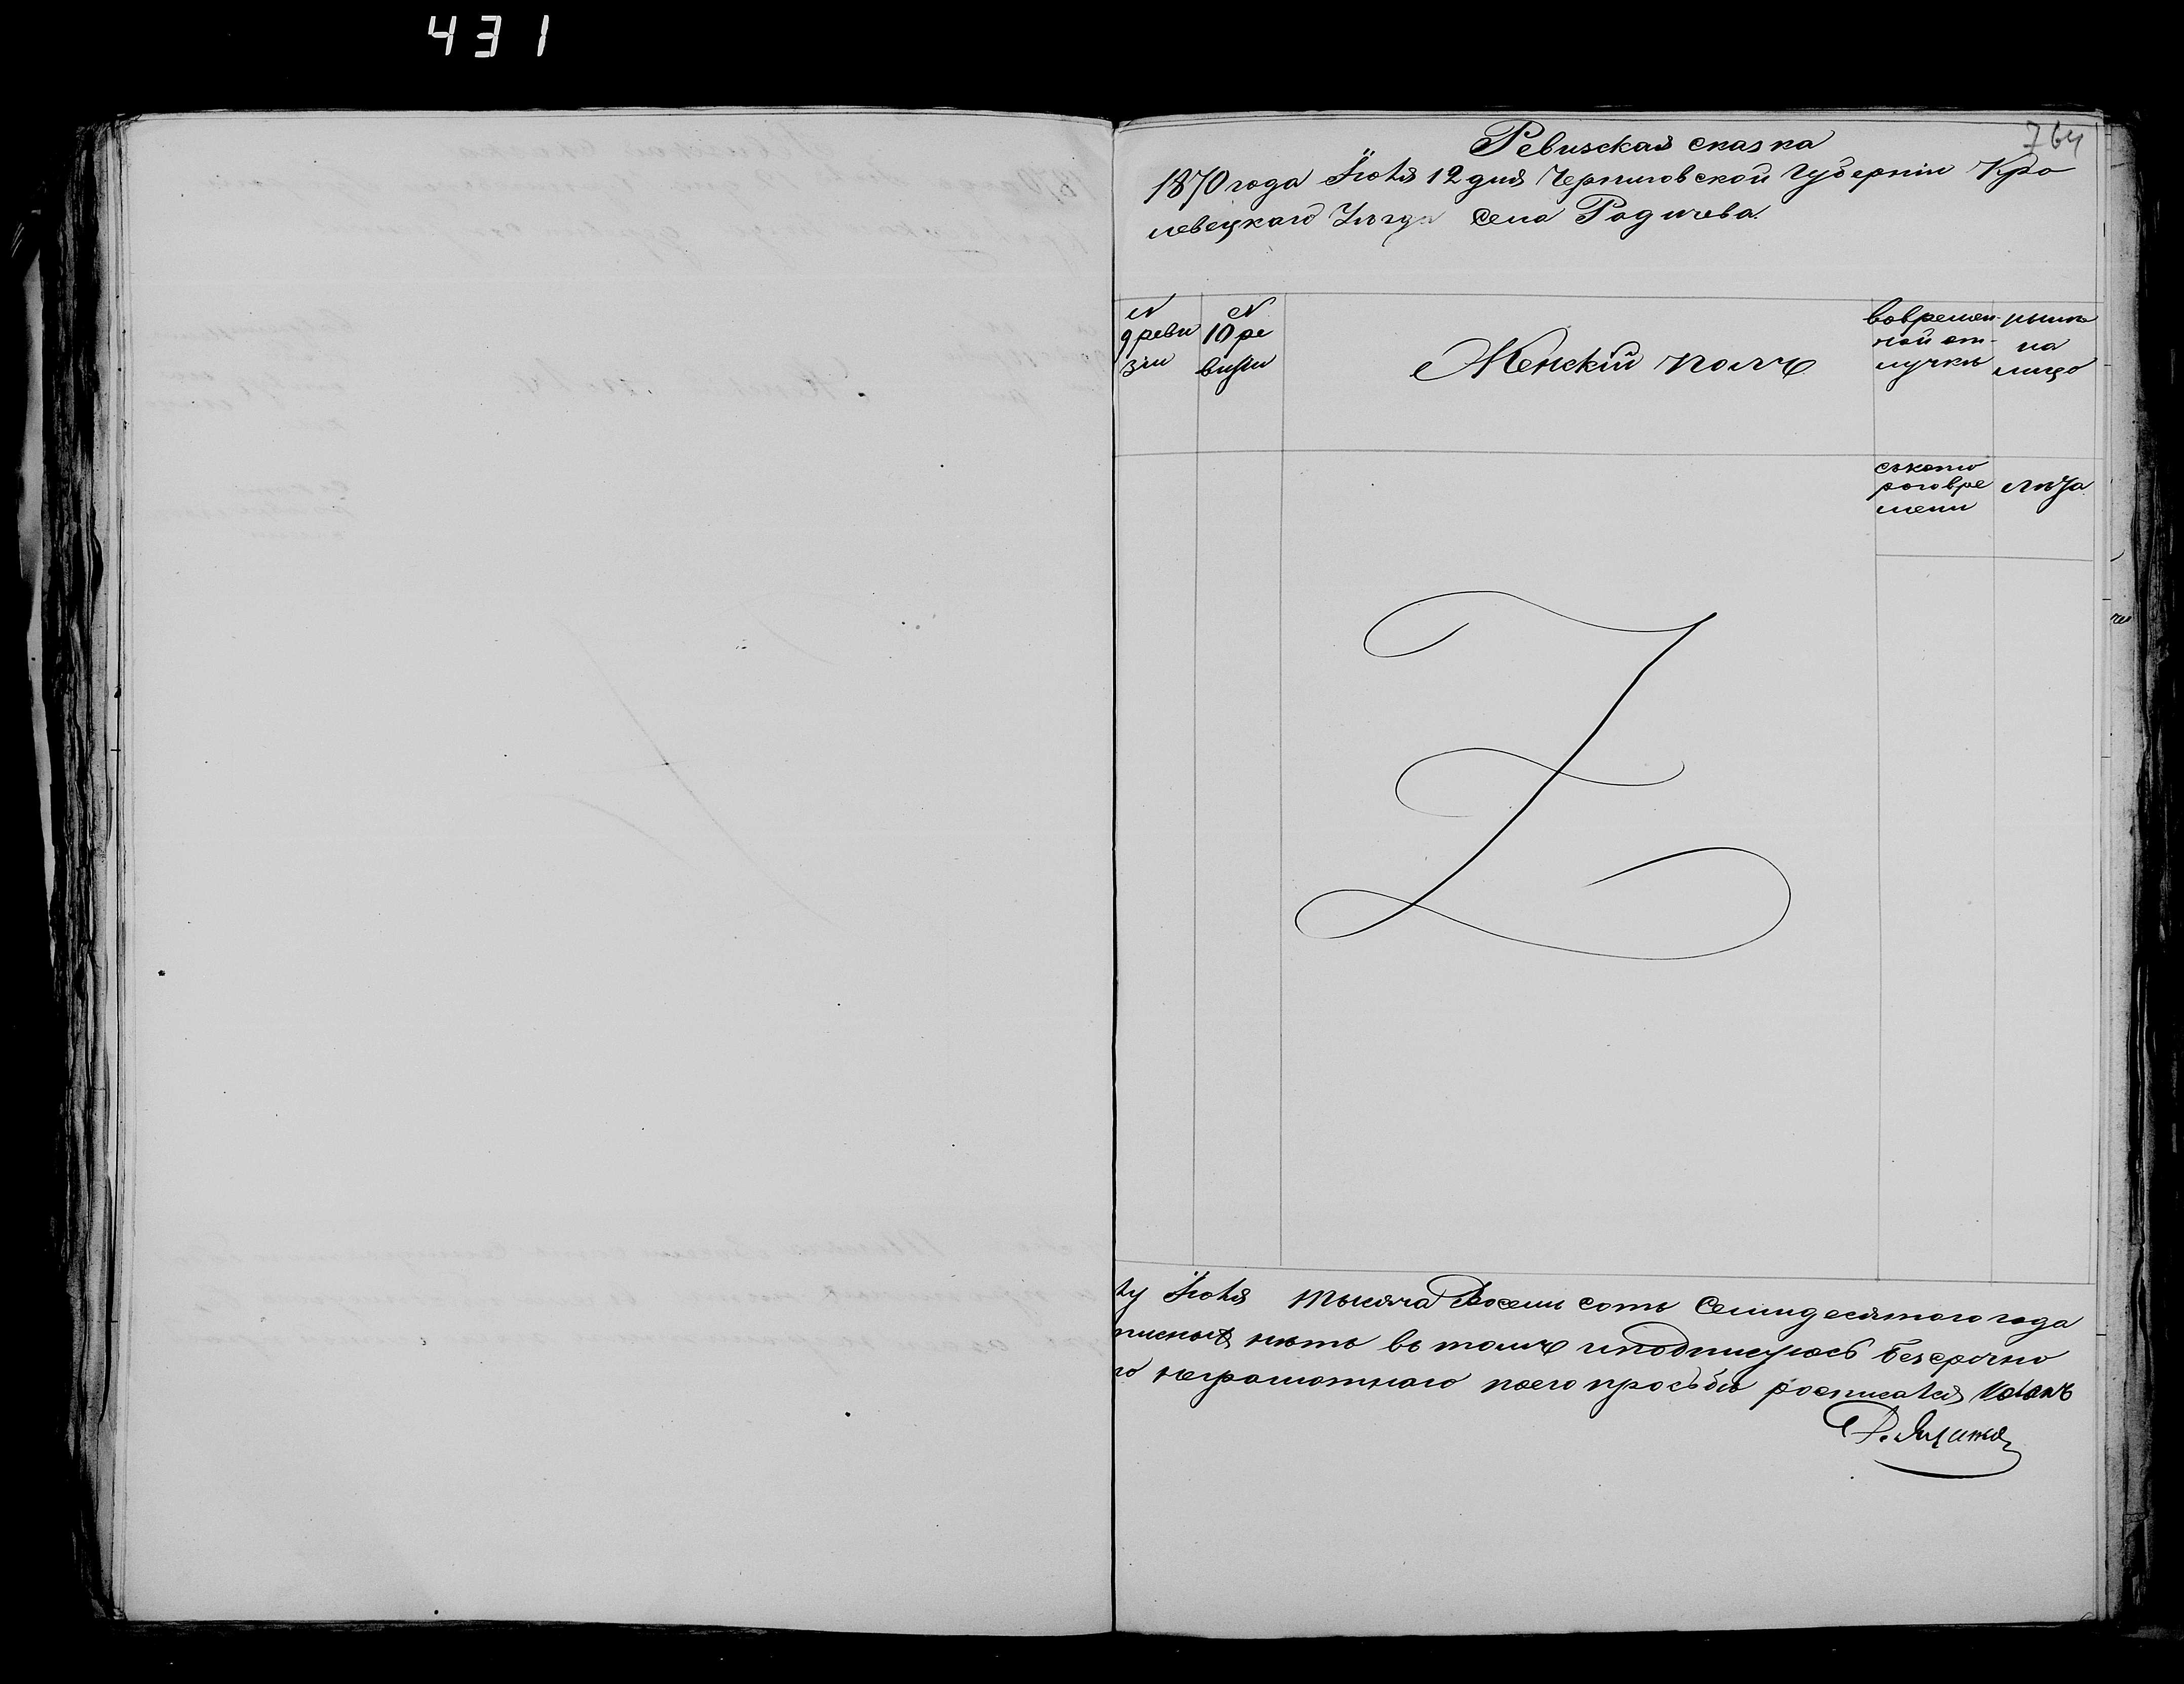 431
764
Ревизская сказка
1870 года Іюля 12 дня Черниговской Губерніи Кро
левецкаго Уѣзда села Радичева
№ 9 реви зіи
№ 10 ре визіи
Женскій полъ
вовремен- ной от- лучкѣ
нынѣ на лицо
съкото роговре мени
лѣта
Іюля тысяча Восемь сотъ Семидесятого года
нѣтъ въ томъ иподписуюсь безсрочно
го неграмотнаго поего просьбѣ росписался